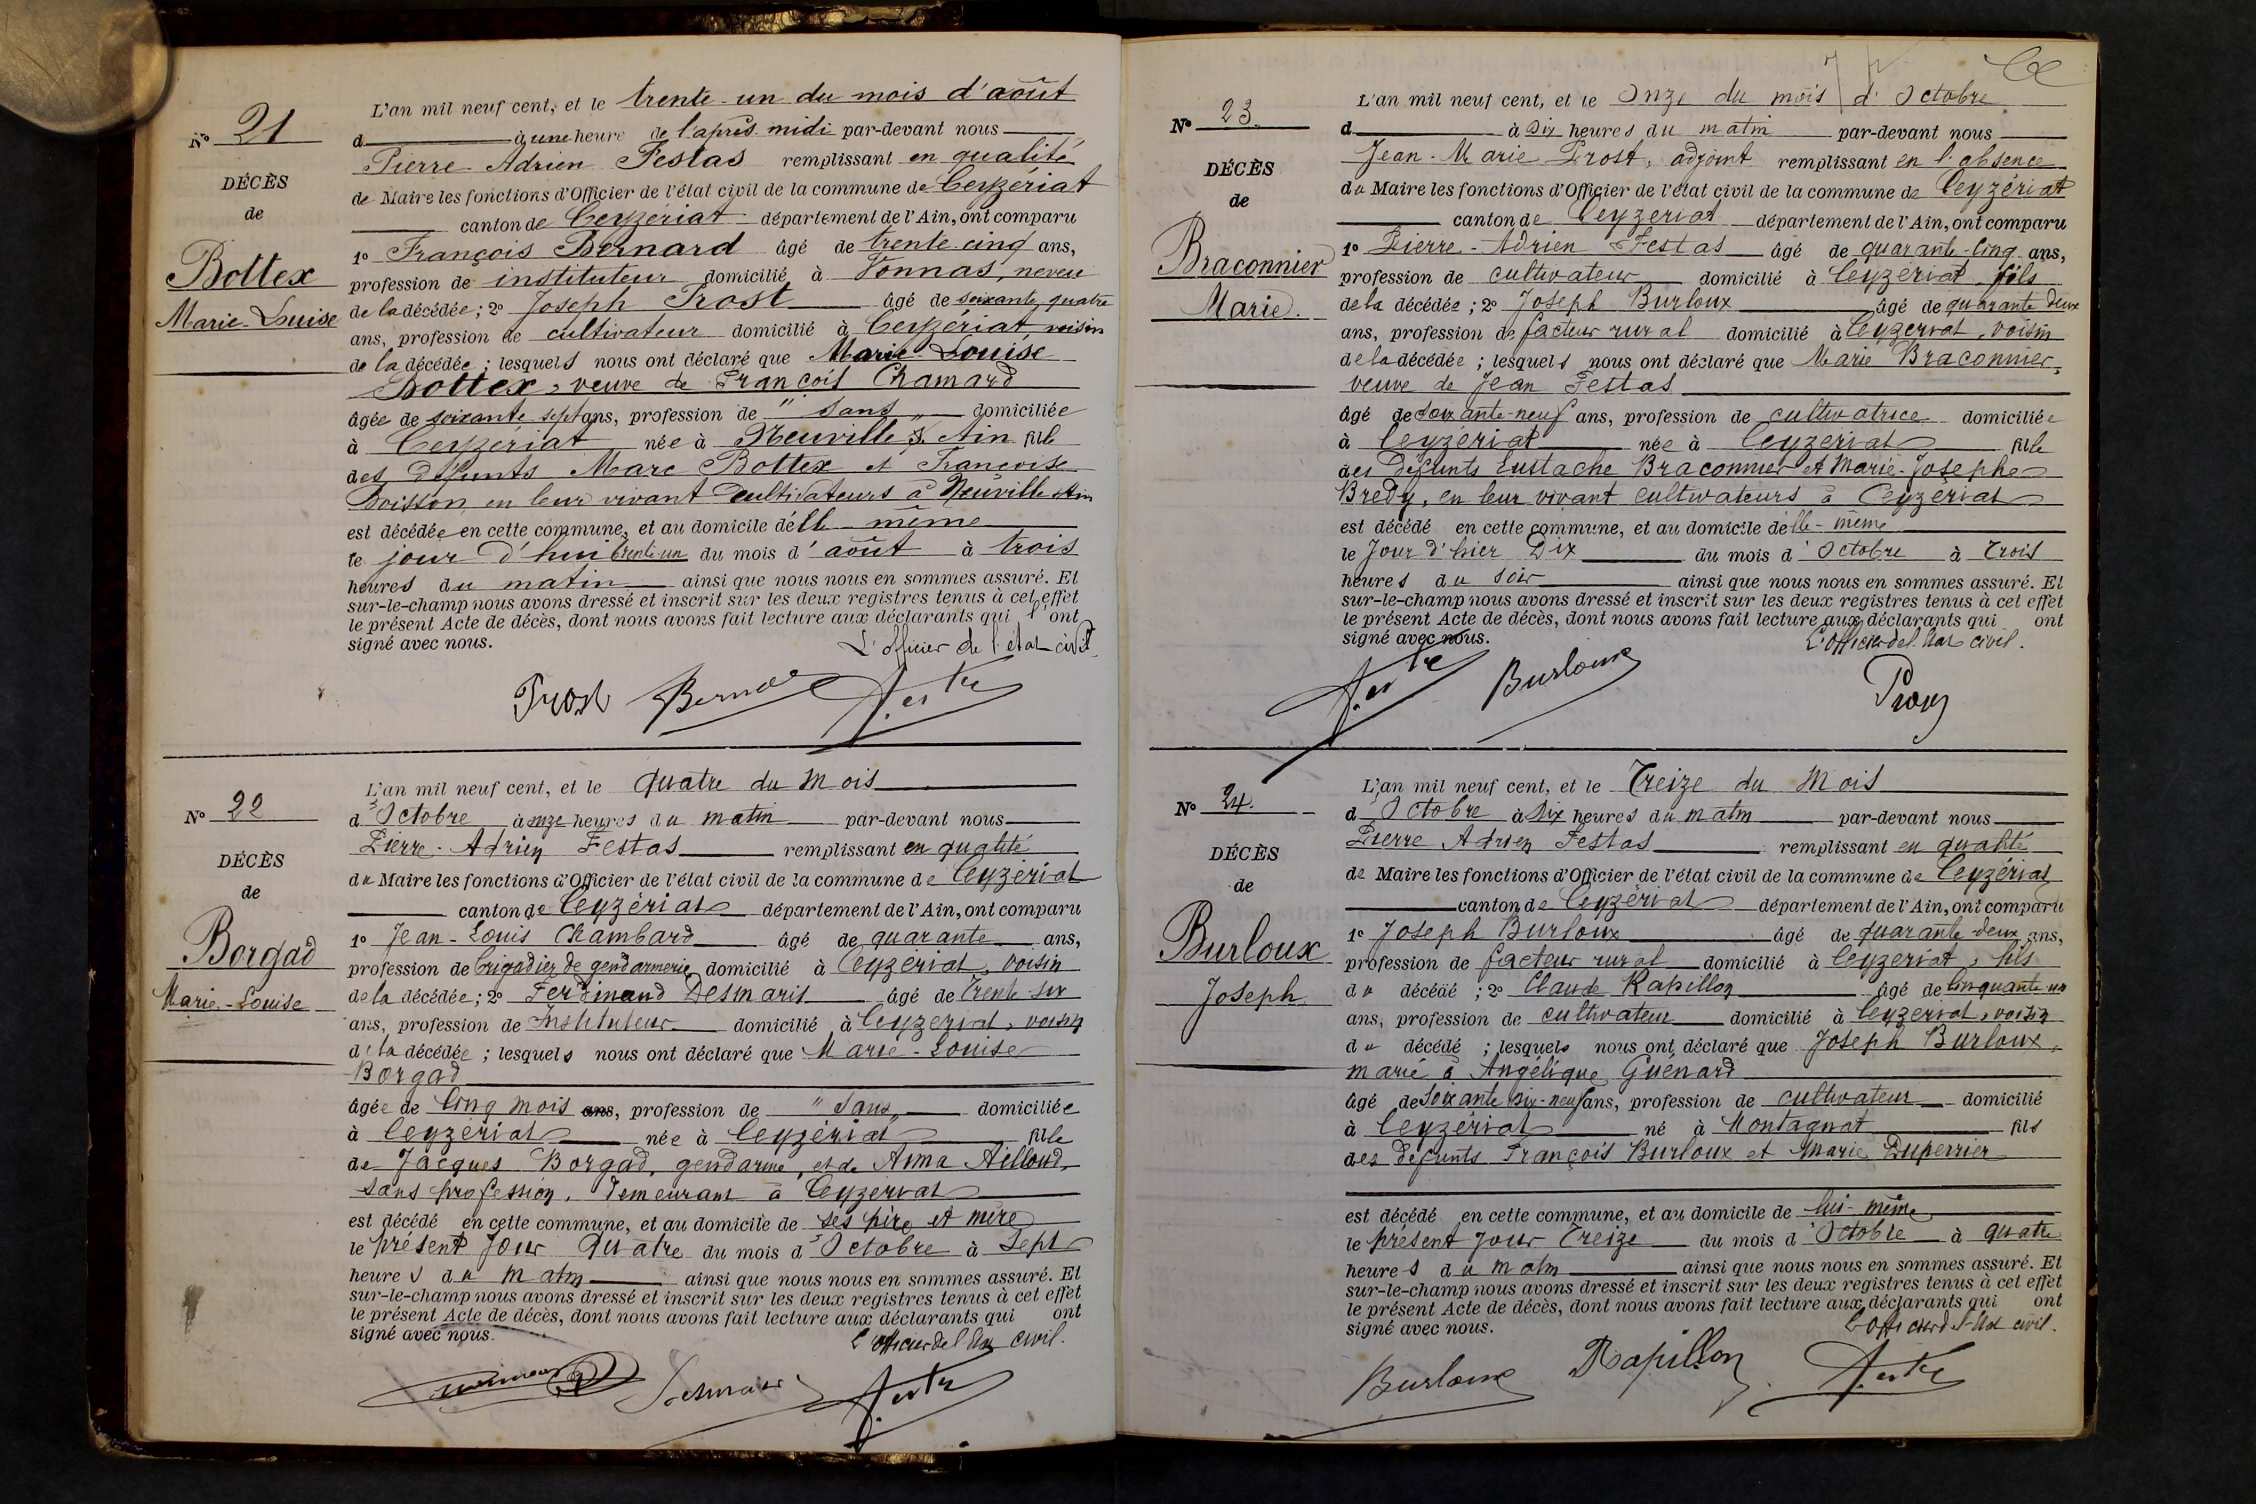 L'an mil neuf cent, et le trente-un du mois d'août
N° 21
d à une heure de l'après-midi par-devant nous
Pierre-Adrien Festas remplissant en qualité
DÉCÈS
de Maire les fonctions d'Officier de l'état civil de la commune de Ceyzériat
de
canton de Ceyzériat département de l'Ain, ont comparu
1° François Bernard âgé de trente-cinq ans,
Bottex
profession de instituteur domicilié à Vonnas, neveu
Marie-Louise
de la décédée ; 2° Joseph Prost âgé de soixante-quatre
ans, profession de cultivateur domicilié à Ceyzériat, voisin
de la décédée ; lesquels nous ont déclaré que Marie-Louise
Bottex, veuve de François Chamard
âgée de soixante-sept ans, profession de " sans " domiciliée
à Ceyzériat née à Neuville s. Ain fille
des défunts Marc Bottex et Françoise
en leur vivant cultivateurs à Neuville Ain
est décédée en cette commune, et au domicile d'elle-même
le jour d'hui trente un du mois d'août à trois
heures du matin ainsi que nous nous en sommes assuré. Et
sur-le-champ nous avons dressé et inscrit sur les deux registres tenus à cet effet
le présent Acte de décès, dont nous avons fait lecture aux déclarants qui l'ont
signé avec nous.
L'officier de l'état civil
Prost
L'an mil neuf cent, et le quatre du mois
N° 22
d'Octobre à onze heures du matin par-devant nous
Pierre-Adrien Festas remplissant en qualité
DÉCÈS
du Maire les fonctions d'Officier de l'état civil de la commune de Ceyzériat
de
canton de Ceyzériat département de l'Ain, ont comparu
Borgad
1° Jean-Louis Chambard âgé de quarante ans,
profession de brigadier de gendarmerie domicilié à Ceyzériat, voisin
Marie-Louise
de la décédée ; 2° Ferdinand Desmaris âgé de trente six
ans, profession de Instituteur domicilié à Ceyzériat, voisin
de la décédée ; lesquels nous ont déclaré que Marie-Louise
Borgad
âgée de Cinq mois ans, profession de " Sans " domiciliée
à Ceyzériat née à Ceyzériat fille
de Jacques Borgad, gendarme, et de Anna Ailloud,
sans profession, demeurant à Ceyzériat
est décédé en cette commune, et au domicile de ses père et mère
le présent jour Quatre du mois d'Octobre à Sept
heures du matin ainsi que nous nous en sommes assuré. Et
sur-le-champ nous avons dressé et inscrit sur les deux registres tenus à cet effet
le présent Acte de décès, dont nous avons fait lecture aux déclarants qui ont
signé avec nous.
L'officier de l'état civil.
L'an mil neuf cent, et le Onze du mois d'Octobre
N° 23.
d à Dix heures du matin par-devant nous
Jean-Marie Prost, adjoint remplissant en l'absence
DÉCÈS
du Maire les fonctions d'Officier de l'état civil de la commune de Ceyzériat
de
canton de Ceyzériat département de l'Ain, ont comparu
1° Pierre-Adrien Festas âgé de quarante-cinq ans,
Braconnier
profession de cultivateur domicilié à Ceyzériat, fils
Marie.
de la décédée ; 2° Joseph Burloux âgé de quarante deux
ans, profession de facteur rural domicilié à Ceyzériat, voisin
de la décédée ; lesquels nous ont déclaré que Marie Braconnier,
veuve de Jean Festas
âgé de soixante-neuf ans, profession de cultivatrice domiciliée
à Ceyzériat née à Ceyzériat fille
des défunts Eustache Braconnier et Marie-Josephe
Bredy, en leur vivant cultivateurs à Ceyzériat
est décédé en cette commune, et au domicile d'elle-même
le Jour d'hier Dix du mois d'Octobre à Trois
heures du soir ainsi que nous nous en sommes assuré. Et
sur-le-champ nous avons dressé et inscrit sur les deux registres tenus à cet effet
le présent Acte de décès, dont nous avons fait lecture aux déclarants qui ont
signé avec nous.
L'officier de l'état civil.
Burloux
L'an mil neuf cent, et le Treize du Mois
N° 24.
d'Octobre à Dix heures du matin par-devant nous
Pierre Adrien Festas remplissant en qualité
DÉCÈS
de Maire les fonctions d'Officier de l'état civil de la commune de Ceyzériat
de
canton de Ceyzériat département de l'Ain, ont comparu
Burloux
1° Joseph Burloux âgé de quarante-deux ans,
profession de facteur rural domicilié à Ceyzériat, fils
Joseph
du décédé ; 2° Claude Rapillon âgé de Cinquante-un
ans, profession de cultivateur domicilié à Ceyzériat, voisin
du décédé ; lesquels nous ont déclaré que Joseph Burloux,
marié à Angélique Guénard
âgé de Soixante dix-neuf ans, profession de cultivateur domicilié
à Ceyzériat né à Montagnat fils
des défunts François Burloux et Marie Duperrier
est décédé en cette commune, et au domicile de lui-même
le présent jour Treize du mois d'Octobre à quatre
heures du matin ainsi que nous nous en sommes assuré. Et
sur-le-champ nous avons dressé et inscrit sur les deux registres tenus à cet effet
le présent Acte de décès, dont nous avons fait lecture aux déclarants qui ont
signé avec nous.
L'officier de l'état civil.
Burloux Rapillon